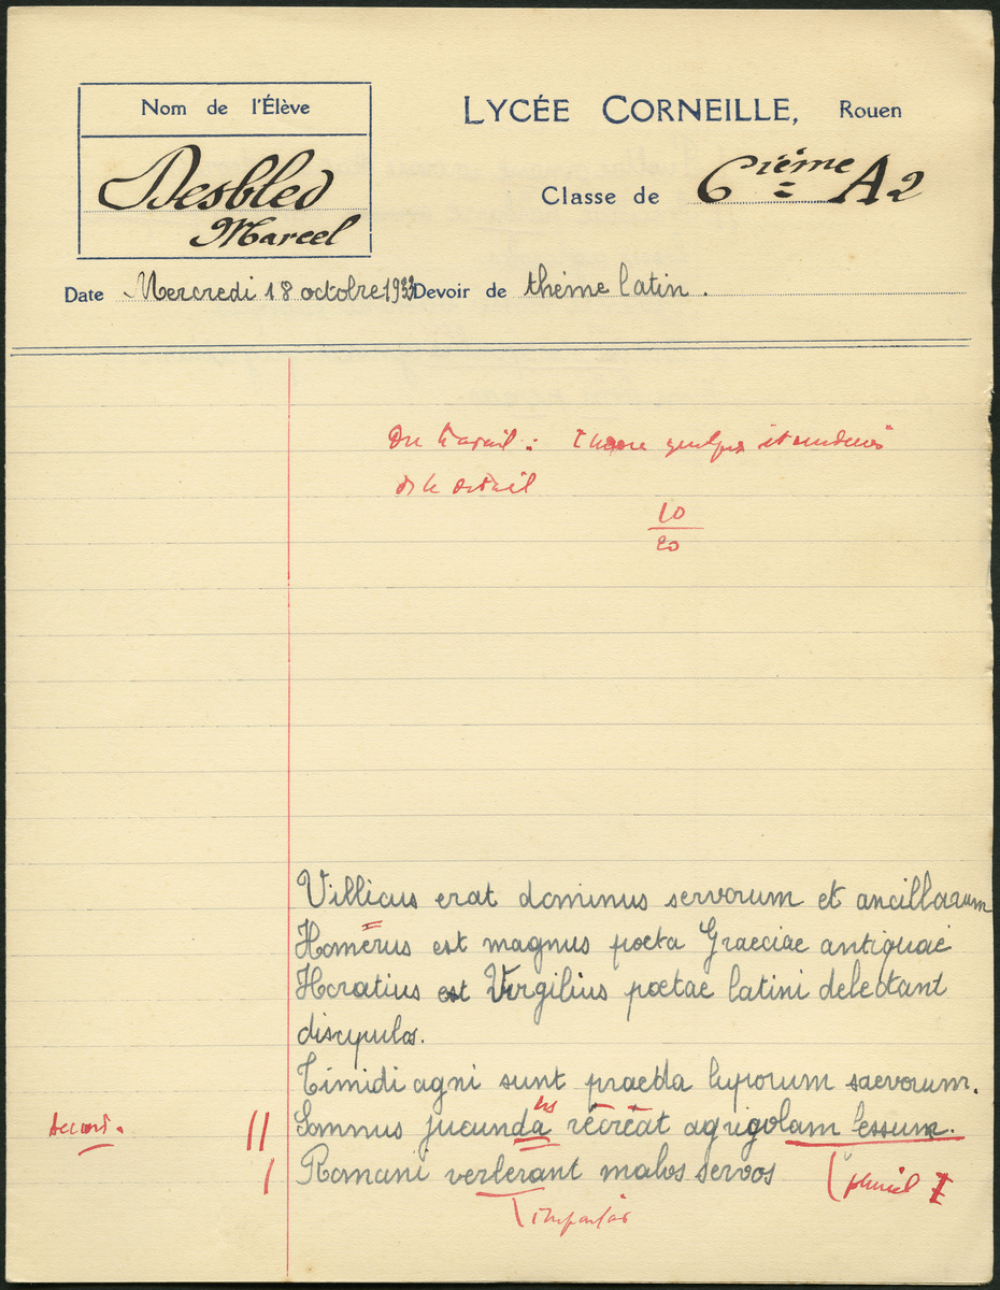 Nom de l'Élève
LYCÉE CORNEILLE, Rouen
Desbled
Marcel
Classe de 6ième A2
Date Mercredi 18 octobre 1933 Devoir de thème latin.
Du travail :
10
20
Villicus erat dominus servorum et ancillarum
Homerus est magnus poeta Graeciae antiquae
Horatius est Virgilius poetae latini delectant
discipulos.
Timidi agni sunt praeda luporum saevorum.
us
accord. || Somnus jucunda recreat agrigolam fessum.
| Romani verberant malos servos
pluriel
imparfait